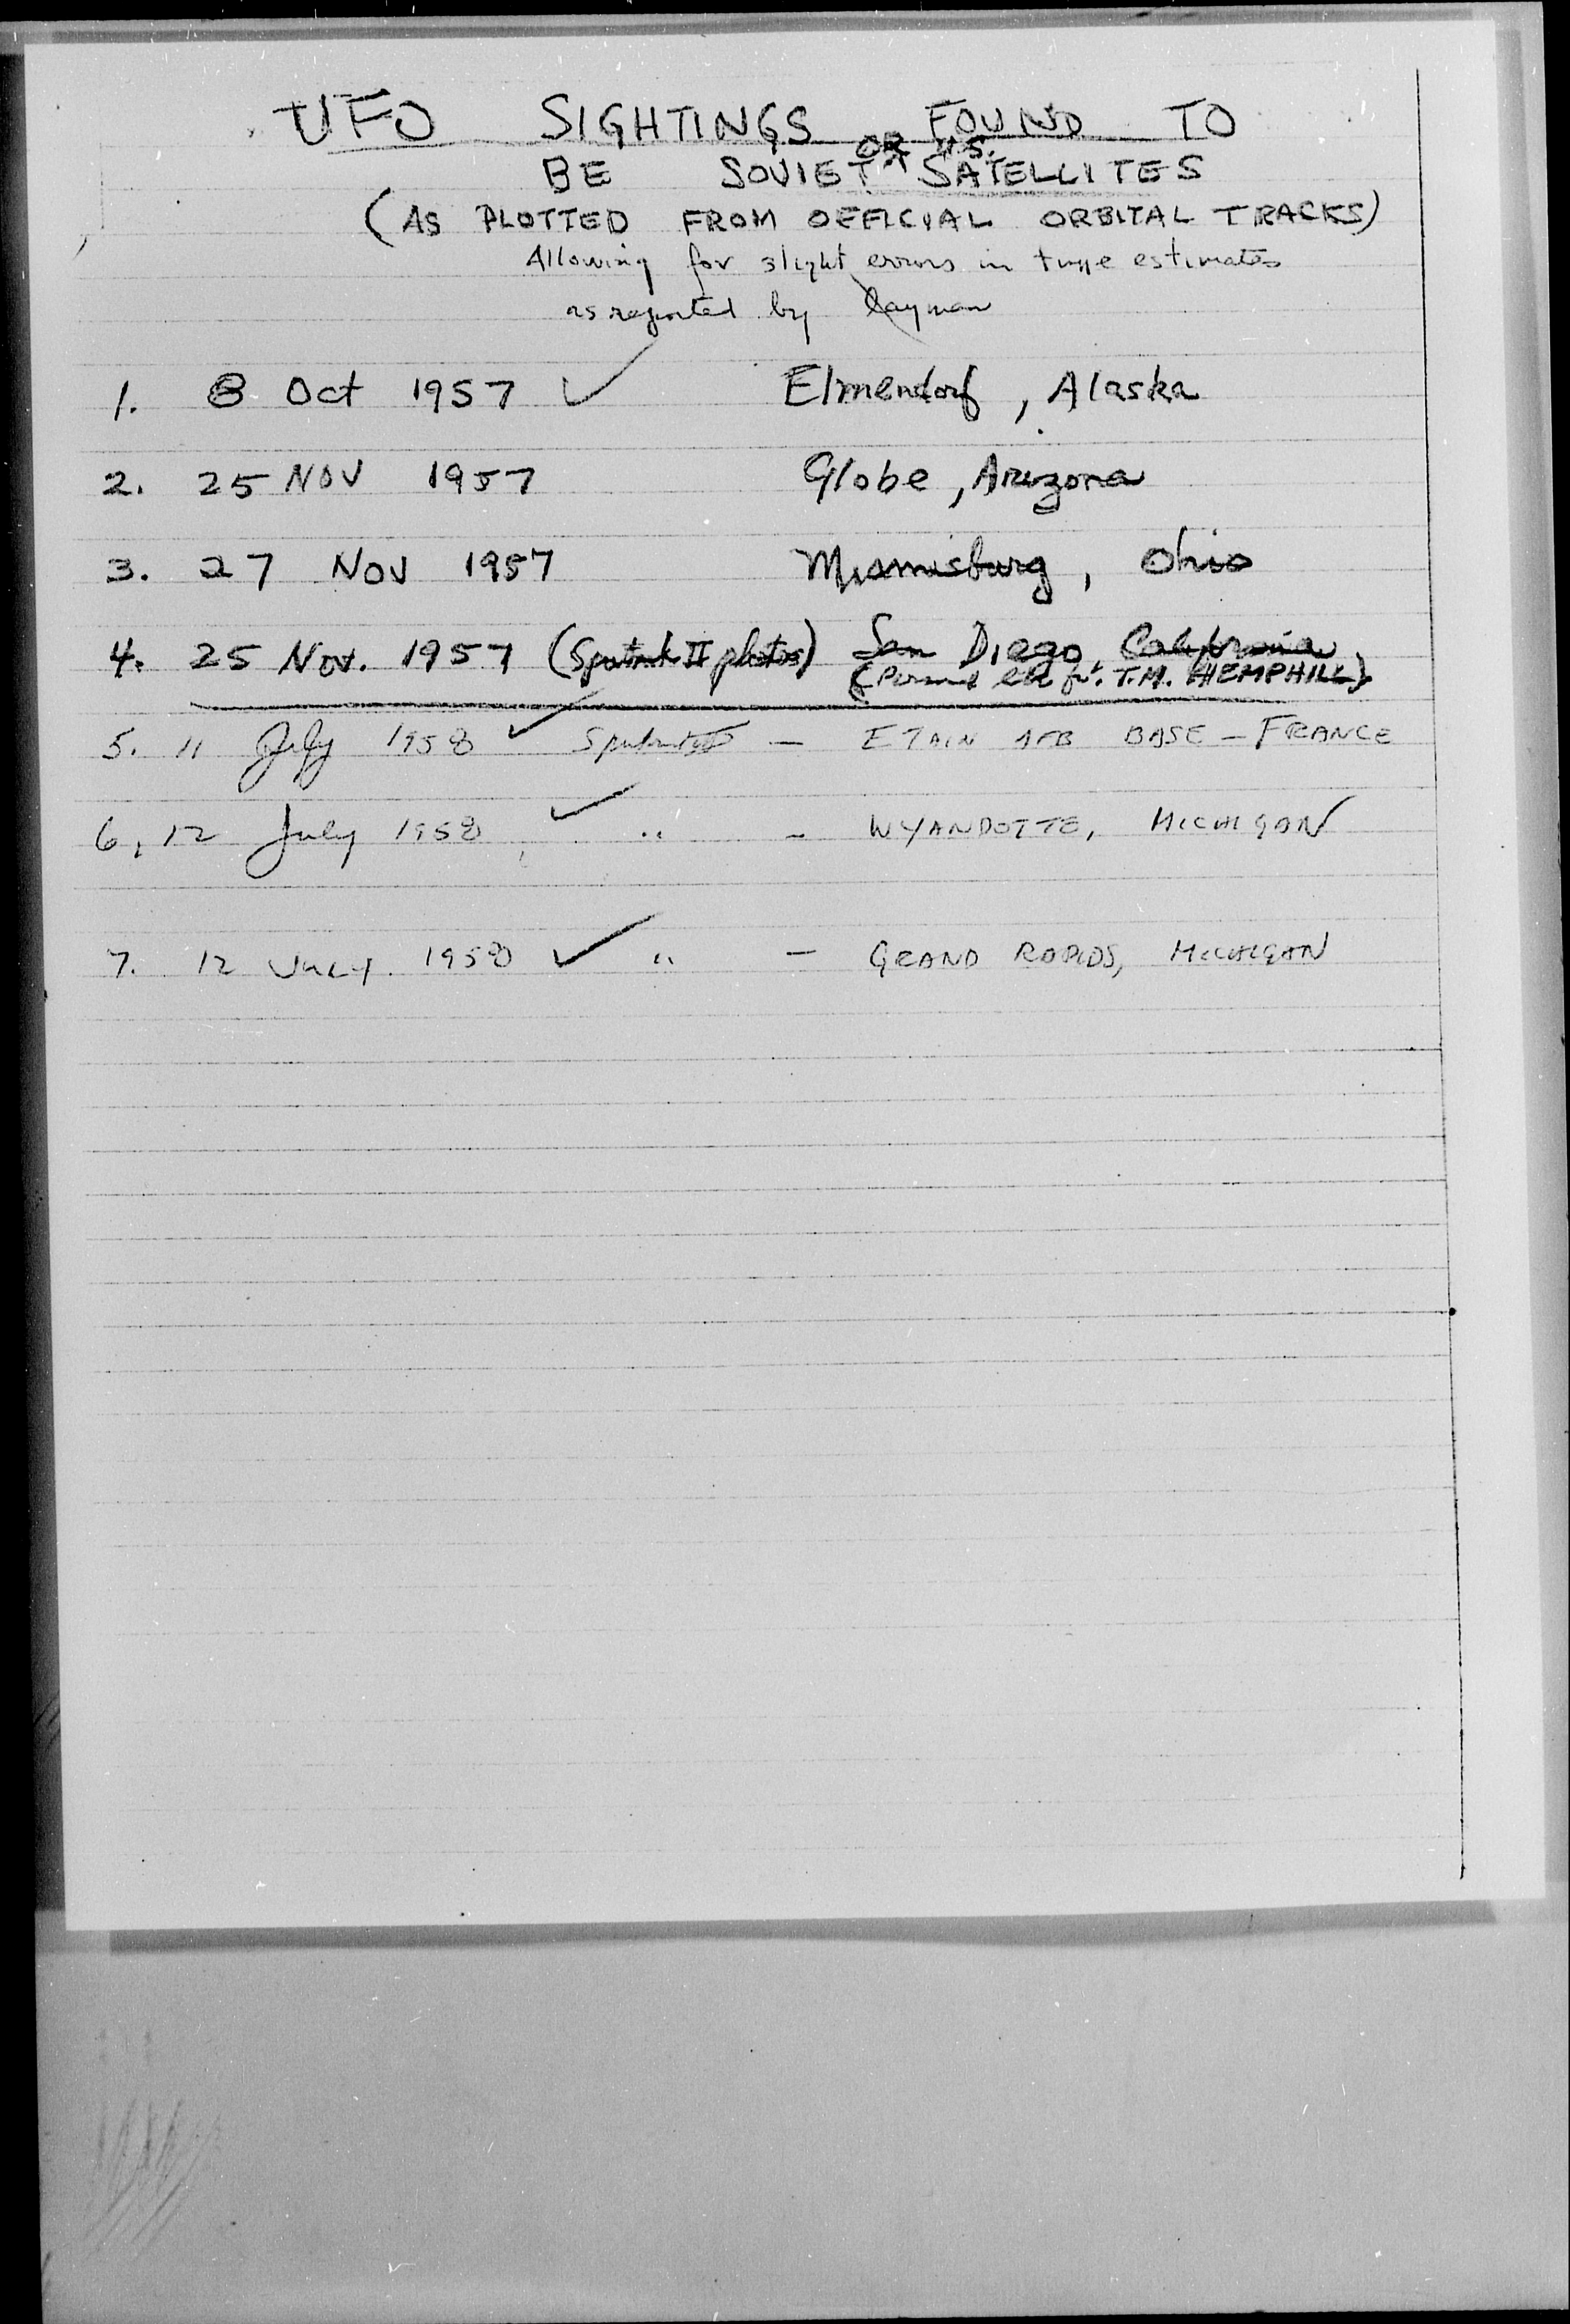 UFO SIGHTINGS FOUND TO
OR U.S.
BE SOVIET ^ SATELLITES
(AS PLOTTED FROM OFFICIAL ORBITAL TRACKS)
Allowing for slight errors in time estimates
as reported by layman
1. 8 Oct 1957 ✓ Elmendorf, Alaska
2. 25 NOV 1957 Globe, Arizona
3. 27 NOV 1957 Miamisburg, Ohio
4. 25 Nov. 1957 (Sputnik II photos) San Diego, California
(Personal T.M. HEMPHILL)
5. 11 July 1958 ✓ Sputnik - ETAIN AFB BASE - FRANCE
6. 12 July 1958 ✓ " - WYANDOTTE, MICHIGAN
7. 12 JULY. 1958 ✓ " - GRAND RAPIDS, MICHIGAN